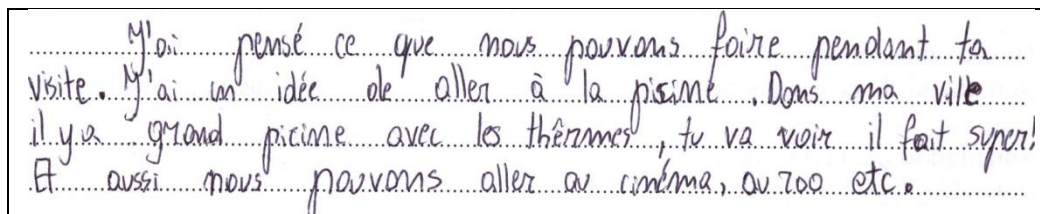 J'ai pensé ce que nous pouvons faire pendant ta
visite. J'ai un idée de aller à la piscine. Dans ma ville
il y a grand picine avec les thêrmes, tu va voir il fait super!
Et aussi nous pouvons aller au cinéma, au zoo etc.